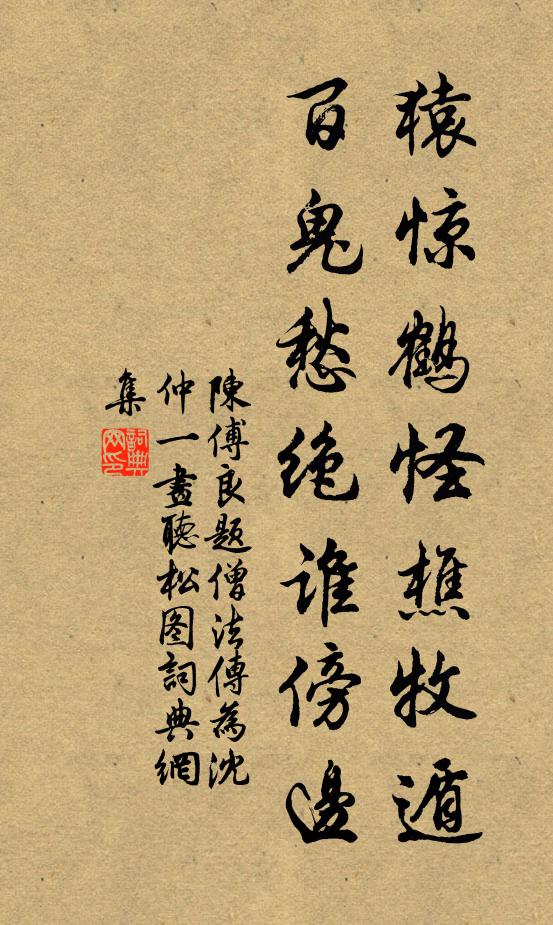 猿惊鹤怪樵牧遁
百鬼愁绝谁傍邊
陳傅良题僧法傳為沈
仲一畫聽松图詞典網
集
詞典网印